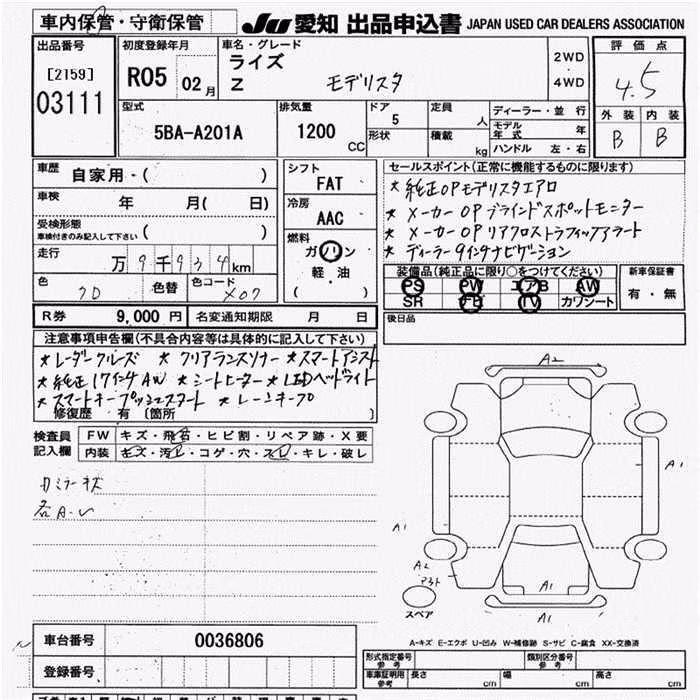 車内保管・守衛保管
JU 愛知 出品申込書 JAPAN USED CAR DEALERS ASSOCIATION
出品番号
[2159]
03111
初度登録年月
R05 02月
車名・グレード
ライズ
Z モデリスタ
2WD
4WD
評価点
4.5
外装 内装
B B
型式
5BA-A201A
排気量
1200 CC
ドア
5
形状
定員
人
積載
kg
ディーラー・並行
モデル年式 年
ハンドル 左・右
車歴
自家用・( )
車検 年 月( 日)
受検形態
車検付きのみ記入して下さい ( )
走行
万 9 千 9 3 4 km
色 色替 色コード
X07
シフト
FAT
冷房
AAC
燃料
ガソリン
軽・油
( )
セールスポイント(正常に機能するものに限ります)
★ 純正OPモデリスタエアロ
★ メーカーOPブラインドスポットモニター
★ メーカーOPリアクロストラフィックアラート
★ ディーラー9インチナビゲーション
装備品(純正品に限り○をつけてください)
PS PW エアB AW
SR TV カワシート
新車保証書
有・無
後日品
R券 9,000 円 名変通知期限 月 日
注意事項申告欄(不具合内容等は具体的に記入して下さい)
★レーダークルーズ ★クリアランスソナー ★スマートアシスト
★純正17インチAW ★シートヒーター ★LEDヘッドライト
★スマートキープッシュスタート ★レーンキープ
修復歴 有 〔箇所 〕
検査員記入欄
FW キズ・飛石・ヒビ割・リペア跡・X要
内装 キズ・汚レ・コゲ・穴・スレ・キレ・破レ
各A-U
A2
A1
A1
A2
A1
A1
スペア
A-キズ E-エクボ U-凹み W-補修跡 S-サビ C-腐食 XX-交換済
車台番号 0036806
登録番号
形式指定番号 参考
類別区分番号 参考
車庫証明用 参考 長さ cm 幅 cm 高さ cm